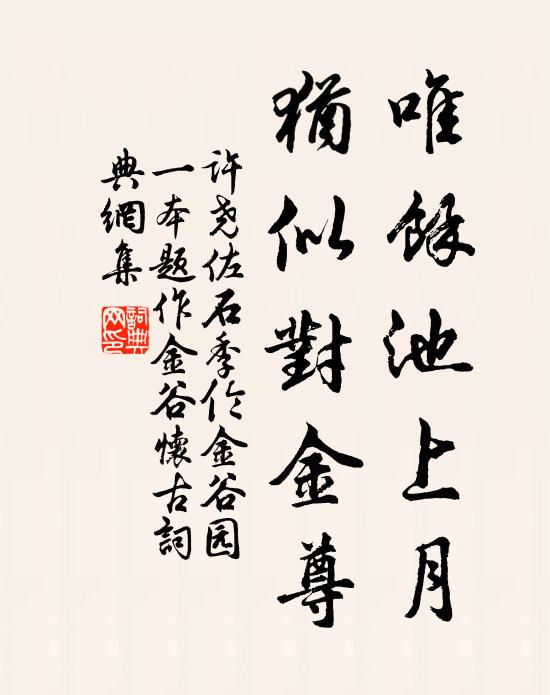 唯餘池上月
猶似對金尊
许尧佐石季伦金谷园
一本题作金谷懷古詞
典網集
詞典網印